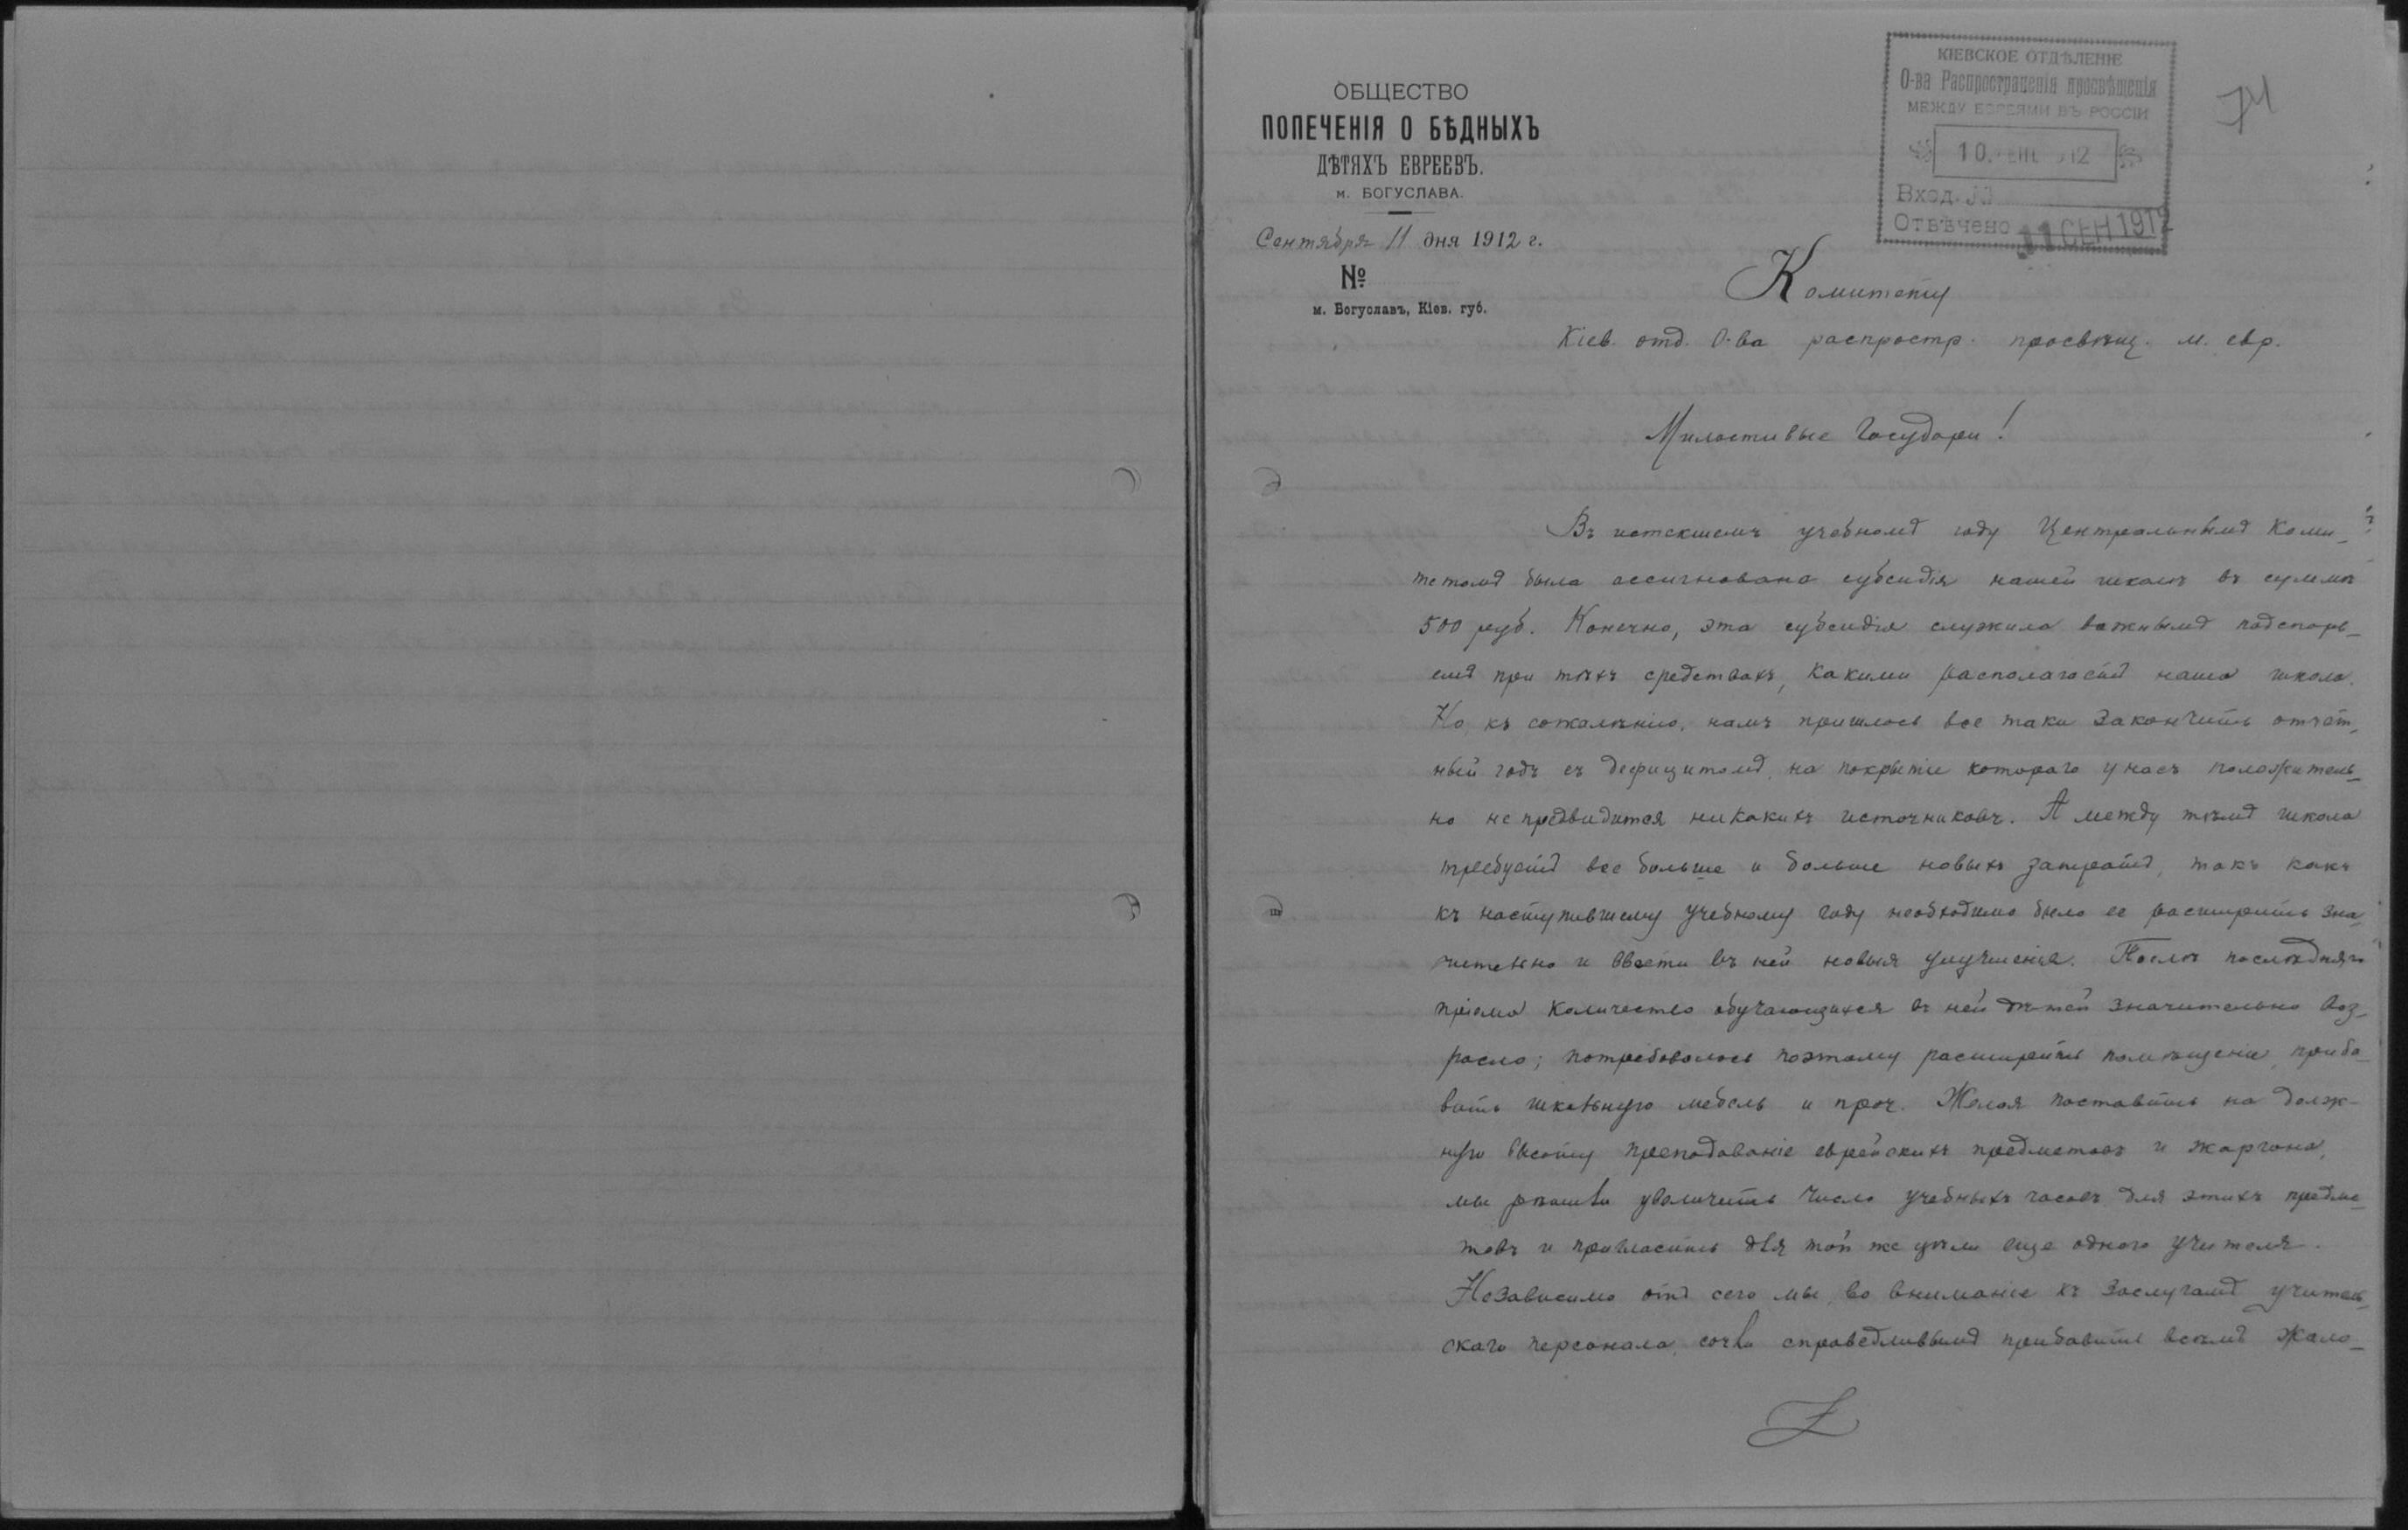 ОБЩЕСТВО
ПОПЕЧЕНІЯ О БѢДНЫХЪ
ДѢТЯХЪ ЕВРЕЕВЪ.
м. БОГУСЛАВА.
Сентября 11 дня 1912 г.
№
м. Богуславъ, Кіев. губ.
КІЕВСКОЕ ОТДѢЛЕНІЕ
О-ва Распространенія просвѣщенія
МЕЖДУ ЕВРЕЯМИ ВЪ РОССІИ
10 СЕН 1912
Вход. №
Отвѣчено 11 СЕН 1912
74
Комитету
Кіев. отд. О-ва распростр. просвѣщ. м. евр.
Милостивые Государи!
Въ истекшемъ учебномъ году Центральнымъ Коми-
тетомъ была ассигнована субсидія нашей школѣ въ суммѣ
500 руб. Конечно, эта субсидія служила важнымъ подспорь-
емъ при тѣхъ средствахъ, какими располагаетъ наша школа.
Но, къ сожалѣнію, намъ пришлось все таки закончить отчет-
ный годъ съ дефицитомъ, на покрытіе котораго у насъ положитель-
но не предвидится никакихъ источниковъ. А между тѣмъ школа
требуетъ все больше и больше новыхъ затратъ, такъ какъ
къ наступившему учебному году необходимо было ее расширить зна-
чительно и ввести въ ней новыя улучшенія. Послѣ послѣдняго
пріема количество обучающихся въ ней дѣтей значительно воз-
расло; потребовалось поэтому расширить помѣщеніе, приба-
вить школьную мебель и проч. Желая поставить на долж-
ную высоту преподаваніе еврейскихъ предметовъ и жаргона,
мы рѣшили увеличить число учебныхъ часовъ для этихъ предме-
товъ и пригласить для той же цѣли еще одного учителя.
Независимо отъ сего мы, во вниманіе къ заслугамъ учитель-
скаго персонала, сочли справедливымъ прибавить всѣмъ жало-